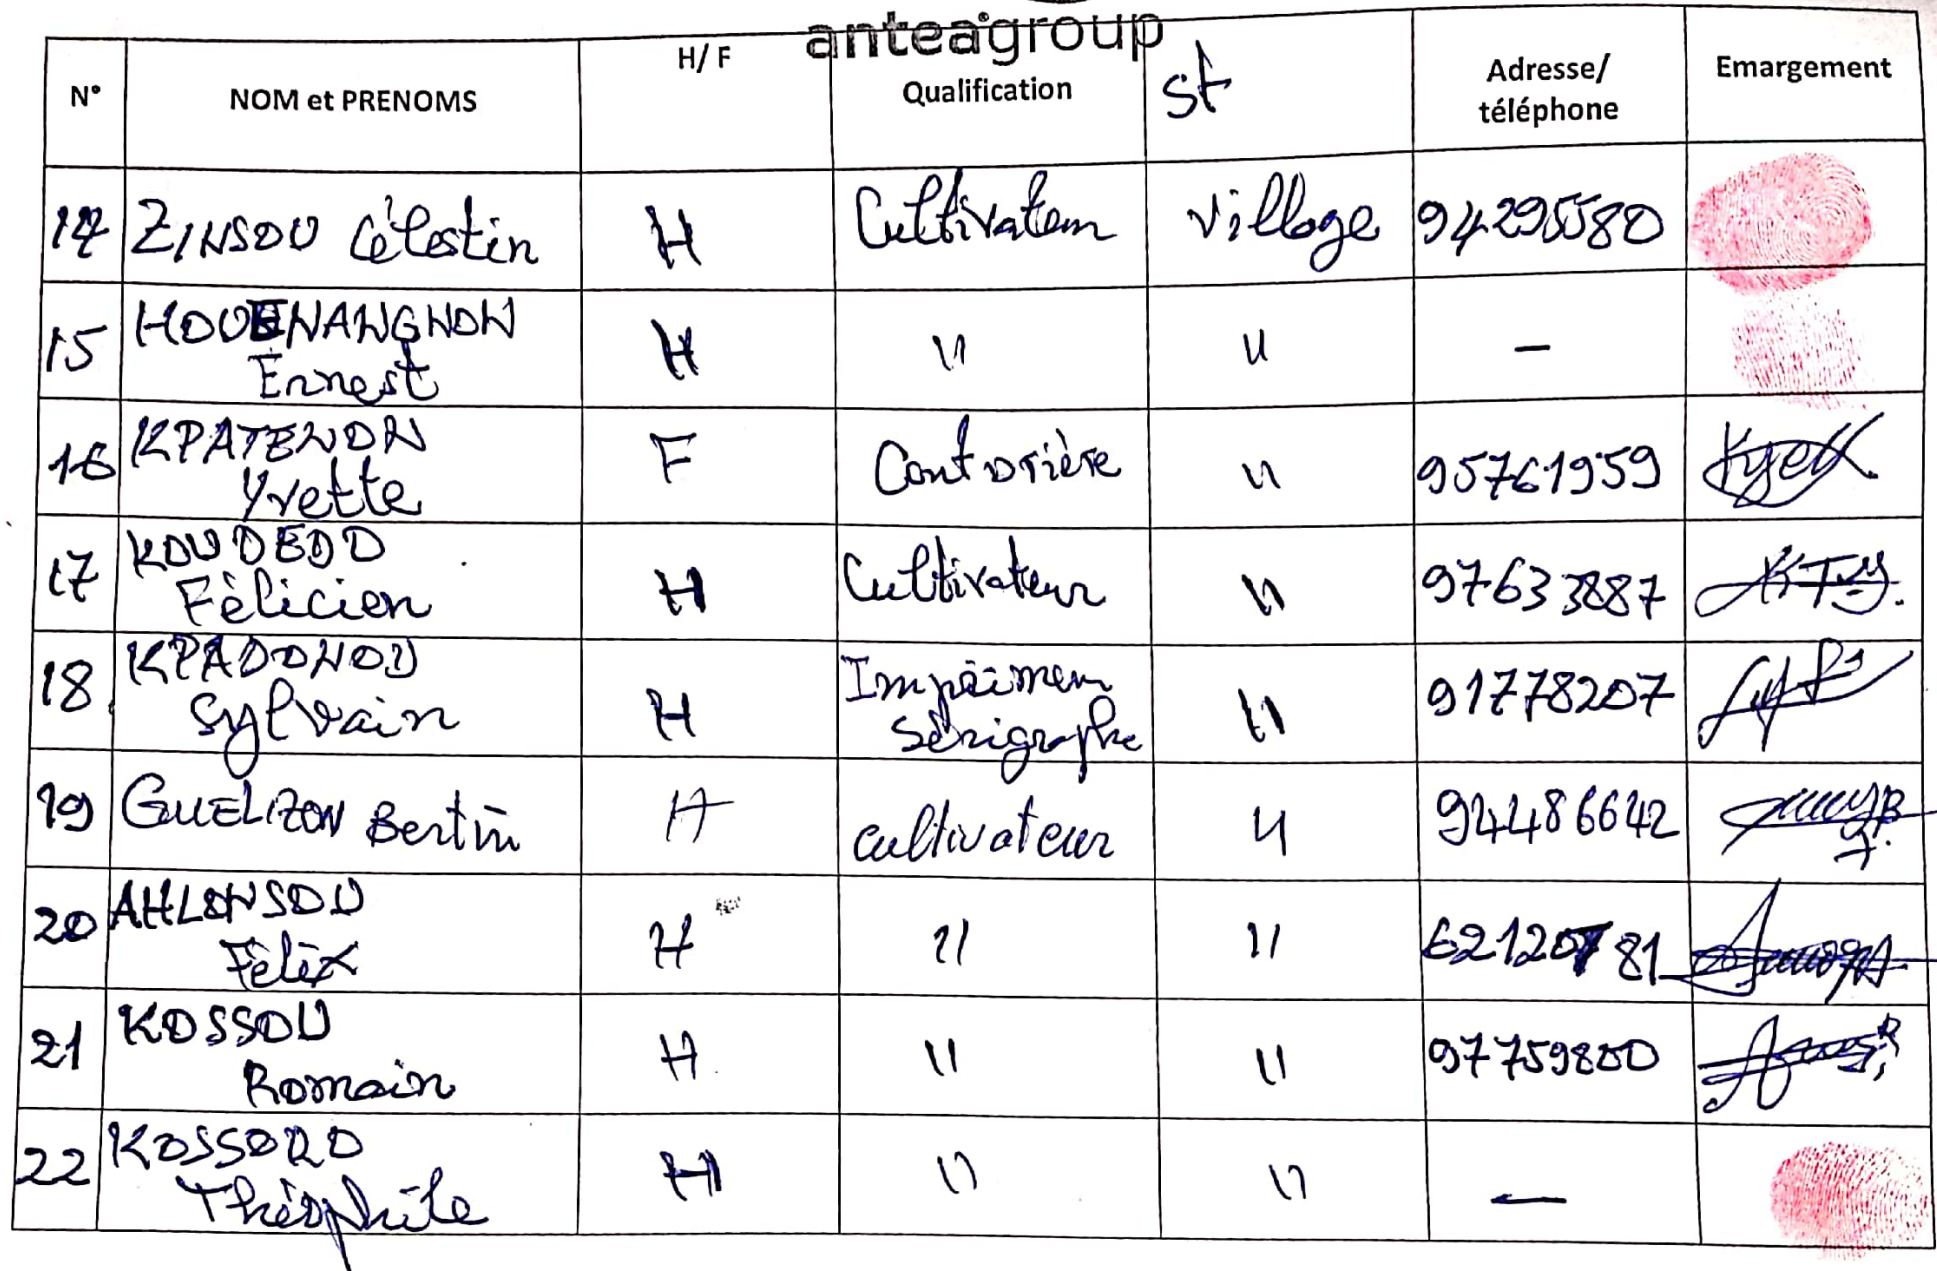 anteagroup
N° NOM et PRENOMS H/ F Qualification st Adresse/ téléphone Emargement
14 ZINSOU Célestin H Cultivateur village 94295580
15 HOUENANGNON Ernest H '' '' -
16 KPATENON Yvette F Couturière '' 95761959
17 KOUDEDO Félicien H Cultivateur '' 97633887
18 KPADONOU Sylvain H Imprimeur Sérigraphe '' 91778207
19 GUELIZON Bertin H cultivateur '' 94486642
20 AHLONSOU Félix H '' '' 62120781
21 KOSSOU Romain H '' '' 97759800
22 KOSSORO Théophile H '' '' -